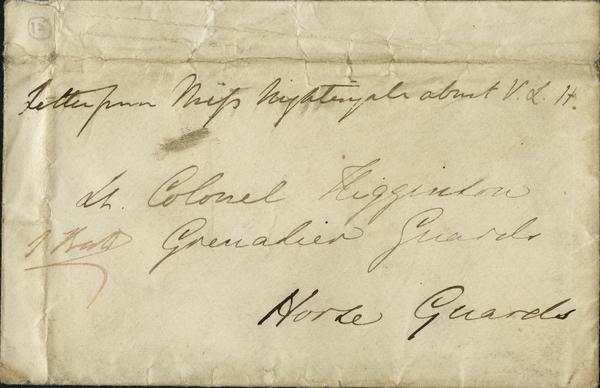 13
Letter from Miss Nightingale about V. L. H.
Lt. Colonel Higginson
Grenadier Guards
Horse Guards